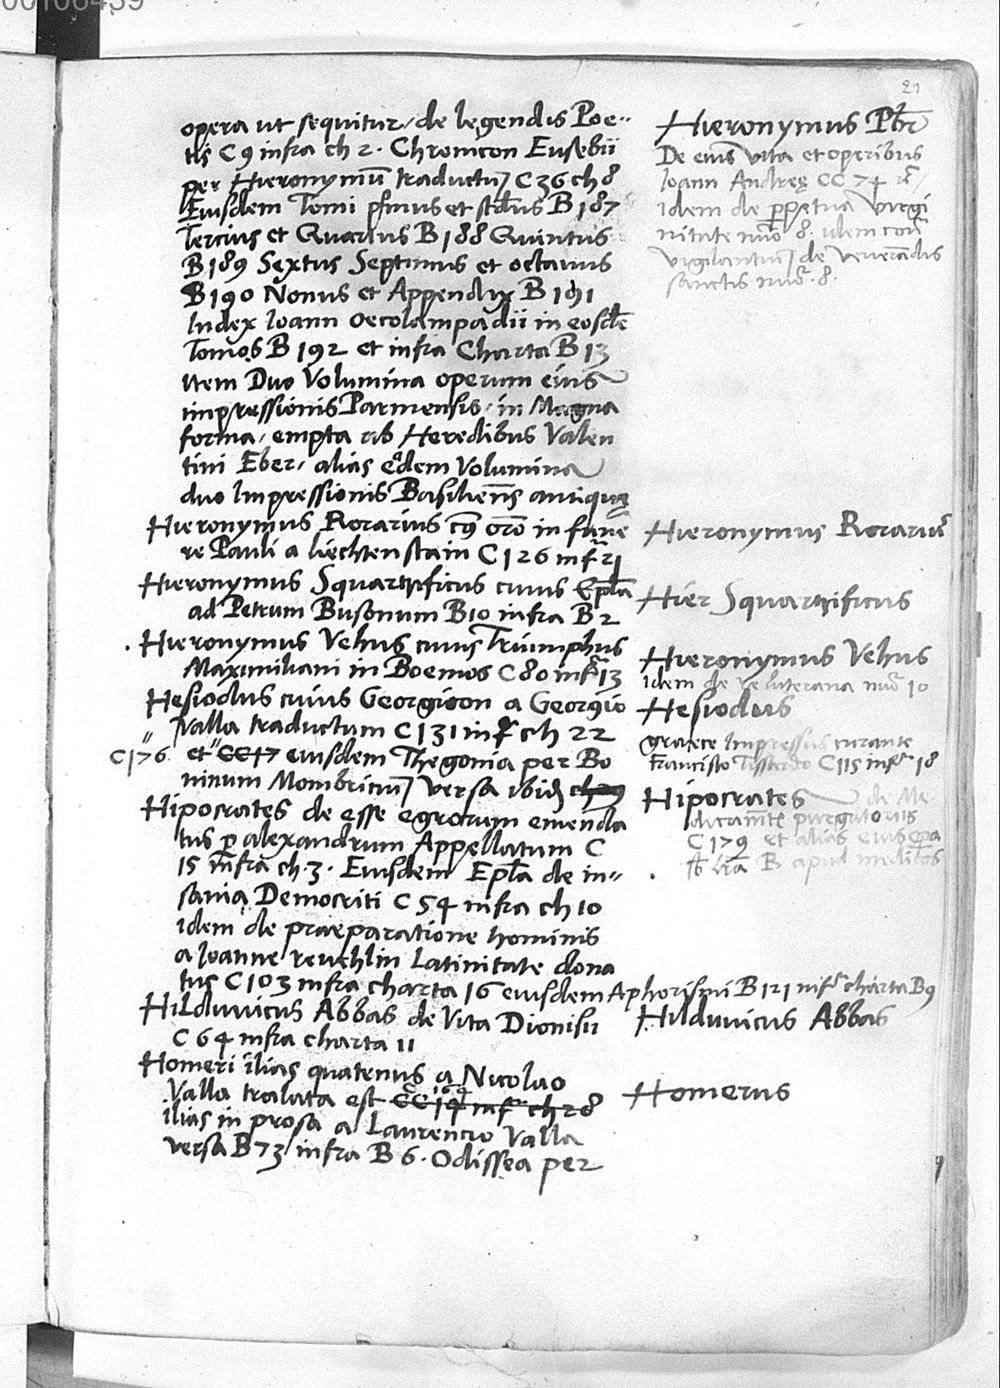 00106439
21
opera ut sequitur / de legendis Poe-
tis C 9 infra ch 2 . Chronicon Eusebii
per Hieronymū traductū C 36 ch 8
Eiusdem Tomi pꝛimus et scdus B 187
Tercius et Quartus B 188 Quintus
B 189 Sextus Septimus et octauus
B 190 Nonus et Appendix B 191
Index Ioann Oecolampadii in eosdē
Tomos B 192 et infra Charta B 13
item Duo Volumina operum eius
impressionis Parmensis / in Magna
forma / empta ab Heredibus Valen
tini Eber / alias eadem Volumina
duo Impressionis Basiliens antique
Hieronymus Rorarius cuius orō in fune
re Pauli a Liechtenstain C 126 infr 21
Hieronymus Squartzificus cuius Epla
ad Petrum Busonum B 10 infra B 2
. Hieronymus Vehus cuius Triumphus
Maximiliani in Boemos C 80 infr 13
Hesiodus cuius Georgicon a Georgio
Valla traductum C 131 infr ch 22
C 176 et CC 17 eiusdem Thegonia per Bo
ninum Mombricium versa ibid
Hipocrates de esse egrotum emenda
tus p alexandrum Appellatum C
15 infra ch 3 . Eiusdem Epla de in-
sania Democriti C 54 infra ch 10
idem de praeparatione hominis
a Ioanne reuchlin Latinitate dona
tus C 103 infra charta 16 eiusdem Aphorismi B 121 infr charta B 9
Hilduuicus Abbas de Vita Dionisii
C 64 infra charta 11
Homeri ilias quatenus a Nicolao
Valla tralata est CC 14 infr ch 28
ilias in prosa a Laurencio Valla
versa B 73 infra B 6 . Odissea per
Hieronymus Pbr
De eius vita et operibus
Ioann Andreę CC 74
idem de ppetua virgi
nitate nuo 8 . idem con
vigilantium de venerandis
sanctis nuo . 8 .
Hieronymus Rorarius
Hier Squartzificus
Hieronymus Vehus
idem de re luterana nuo 10
Hesiodus
graece Impressus curante
francisco Tissardo C 115 infr 18
Hipocrates de Me-
dicamētis purgatoriis
C 179 et alias eius opa
B apud medicos
Hilduuicus Abbas
Homerus